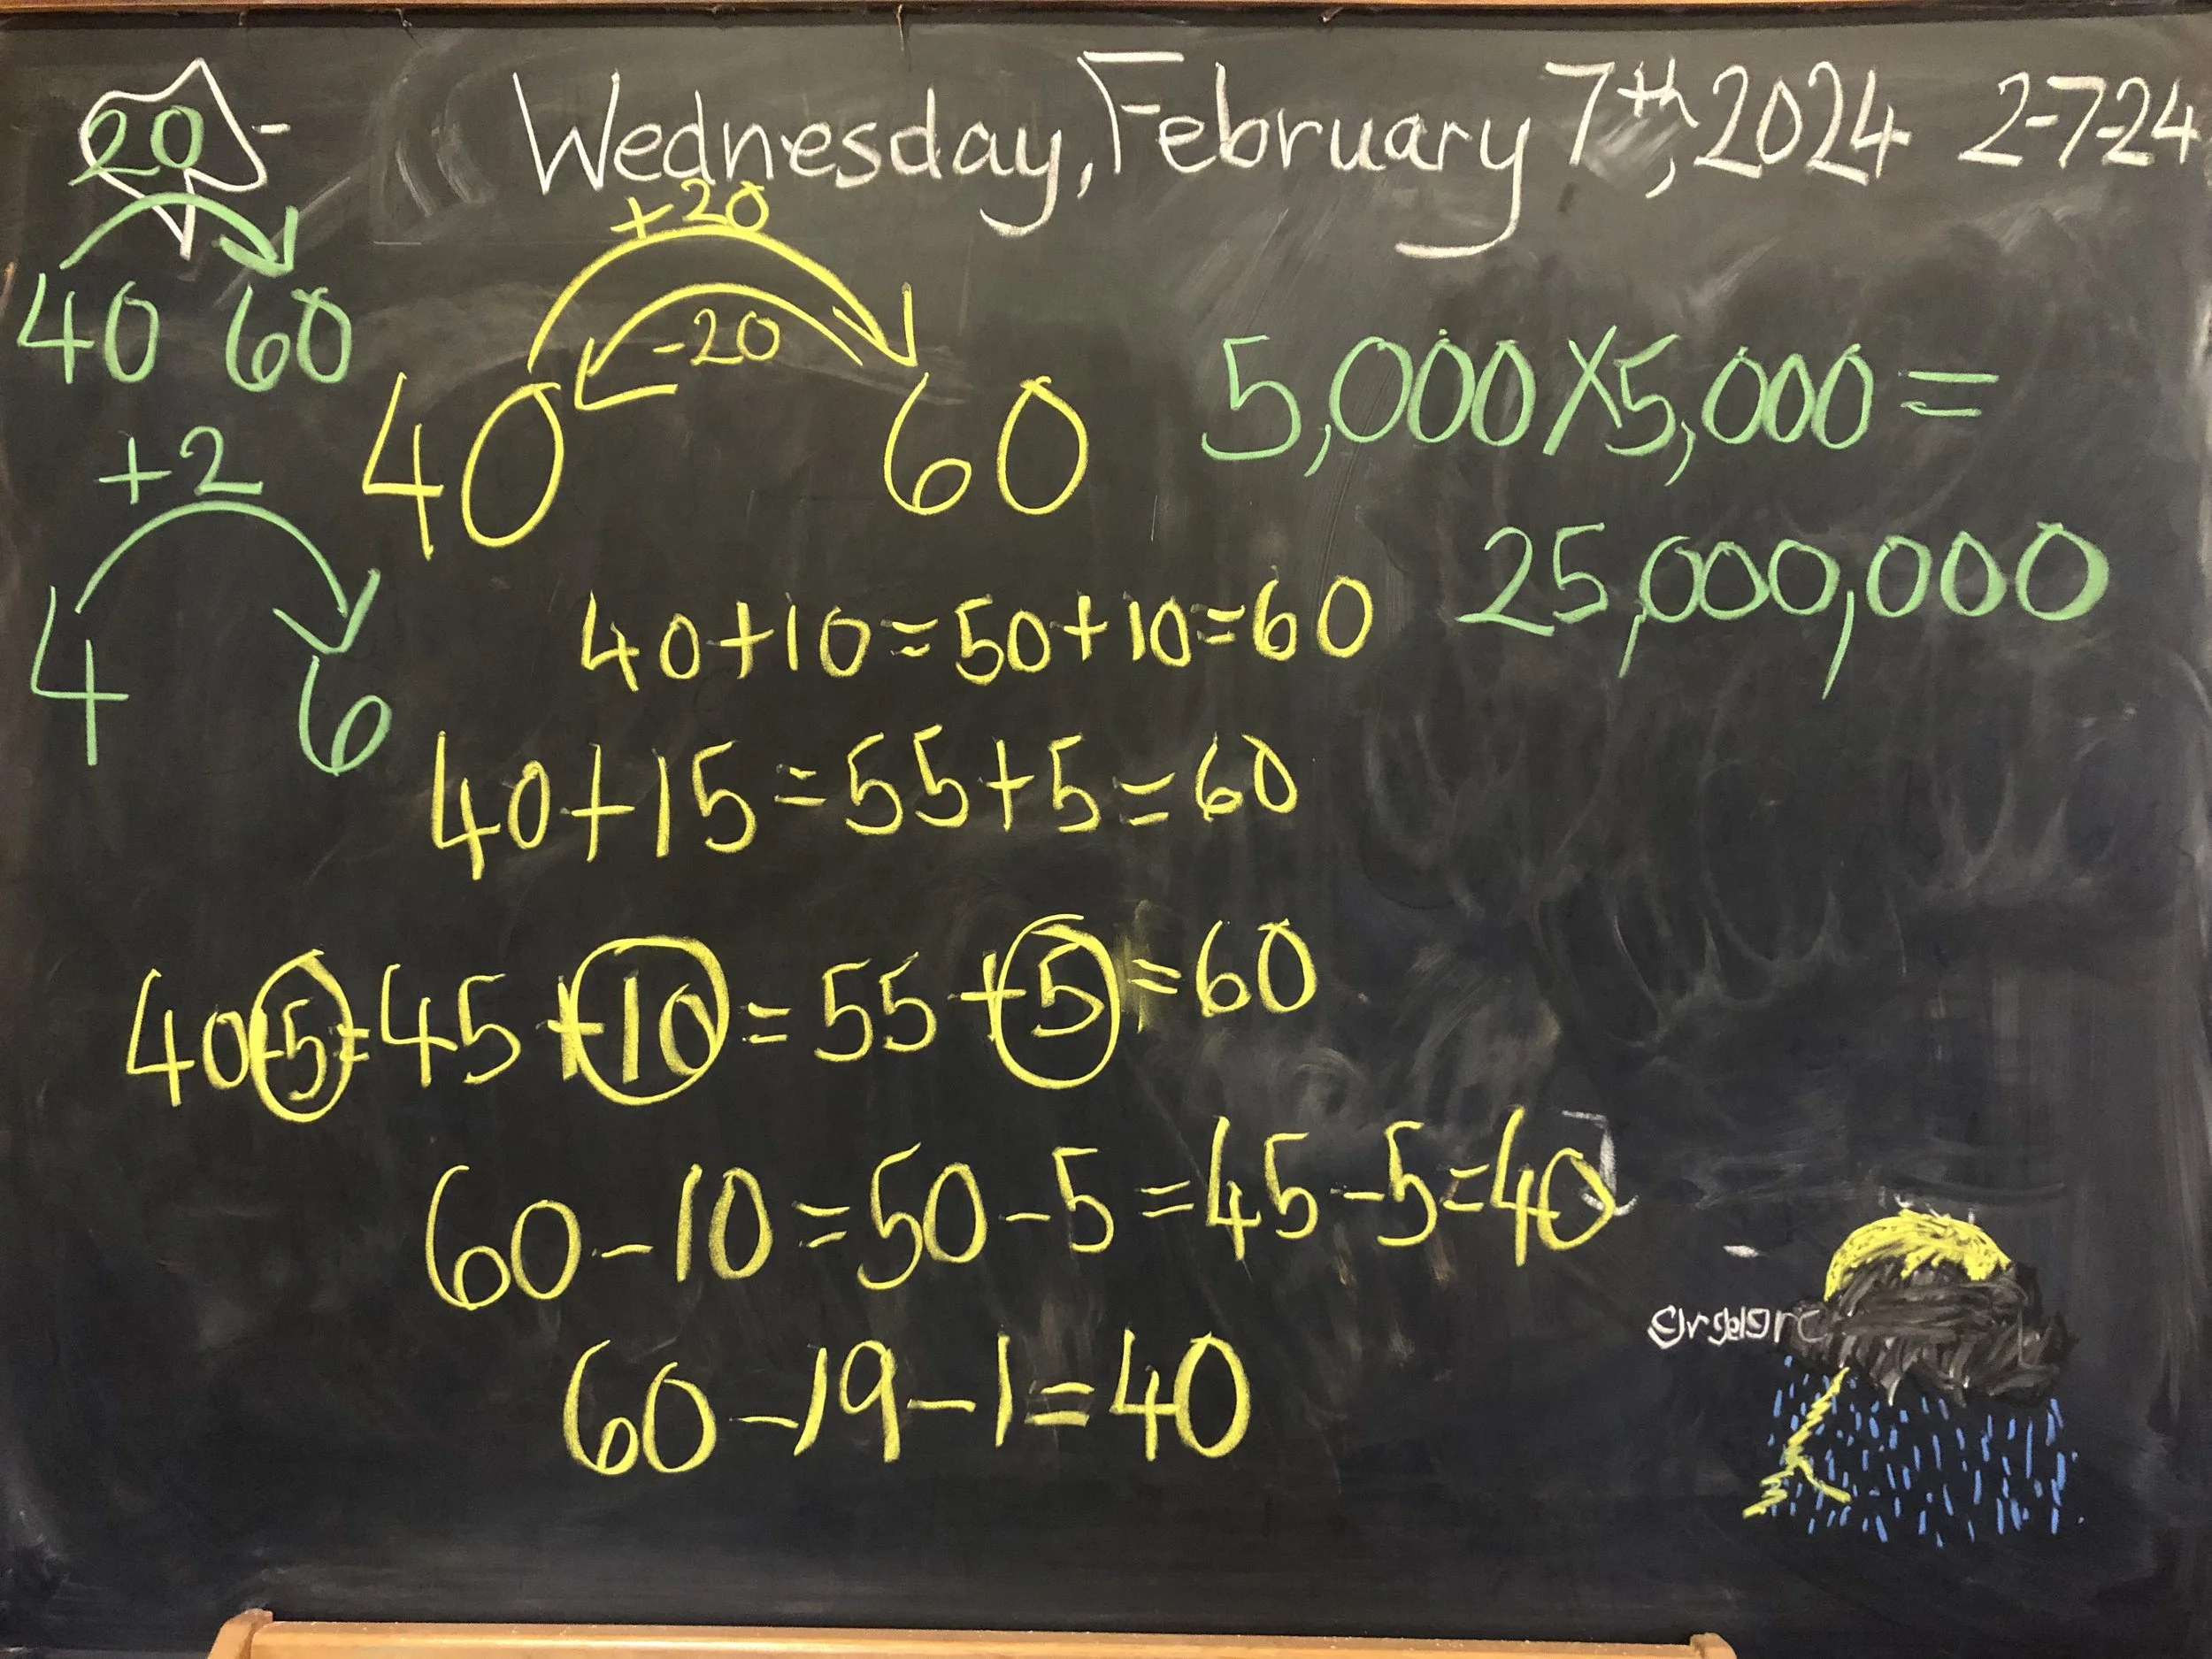 Wednesday, February 7th, 2024 2-7-24
20
40 60
+2
4 6
+20
-20
40 60
5,000X5,000=
25,000,000
40+10=50+10=60
40+15=55+5=60
40+5=45+10=55+5=60
60-10=50-5=45-5=40
60-19-1=40